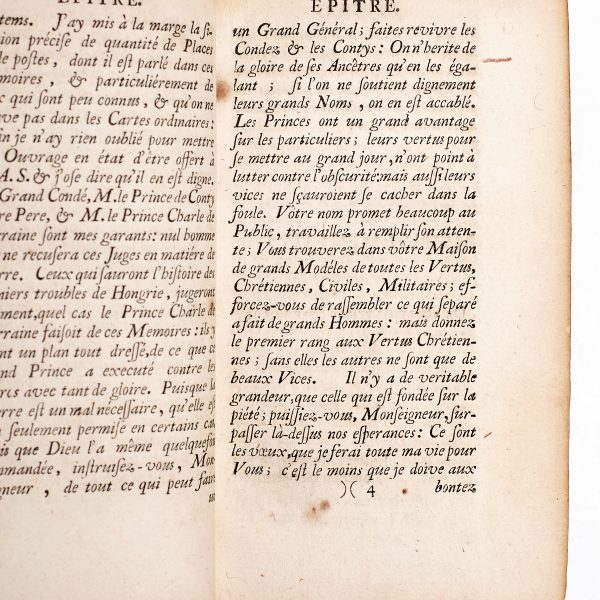 EPITRE.
tems. J'ay mis à la marge la si-
ion précise de quantité de Places
de postes, dont il est parlé dans ces
moires, & particuliérement de
x qui sont peu connus, & qu'on ne
uve pas dans les Cartes ordinaires:
in je n'ay rien oublié pour mettre
Ouvrage en état d'être offert à
A.S. & j'ose dire qu'il en est digne.
Grand Condé, M. le Prince de Conty
re Pere, & M. le Prince Charle de
rraine sont mes garants: nul homme
ne recusera ces Juges en matiére de
rre. Ceux qui sauront l'histoire des
niers troubles de Hongrie, jugeront
ment, quel cas le Prince Charle de
rraine faisoit de ces Memoires: il y
nt un plan tout dressé, de ce que ce
nd Prince a executé contre les
rcs avec tant de gloire. Puisque la
rre est un mal nécessaire, qu'elle est
seulement permise en certains cas,
is que Dieu l'a même quelquefois
mmandée, instruisez-vous, Mon-
igneur, de tout ce qui peut faire
un
EPITRE.
un Grand Général; faites revivre les
Condez & les Contys: On n'herite de
la gloire de ses Ancêtres qu'en les éga-
lant; si l'on ne soutient dignement
leurs grands Noms, on en est accablé.
Les Princes ont un grand avantage
sur les particuliers; leurs vertus pour
se mettre au grand jour, n'ont point à
lutter contre l'obscurité; mais aussi leurs
vices ne sçauroient se cacher dans la
foule. Vôtre nom promet beaucoup au
Public, travaillez à remplir son atten-
te; Vous trouverez dans vôtre Maison
de grands Modéles de toutes les Vertus,
Chrétiennes, Civiles, Militaires; ef-
forcez-vous de rassembler ce qui separé
a fait de grands Hommes: mais donnez
le premier rang aux Vertus Chrétien-
nes; sans elles les autres ne sont que de
beaux Vices. Il n'y a de veritable
grandeur, que celle qui est fondée sur la
piété; puissiez-vous, Monseigneur, sur-
passer là-dessus nos esperances: Ce sont
les vœux, que je ferai toute ma vie pour
Vous; c'est le moins que je doive aux
)( 4 bontez